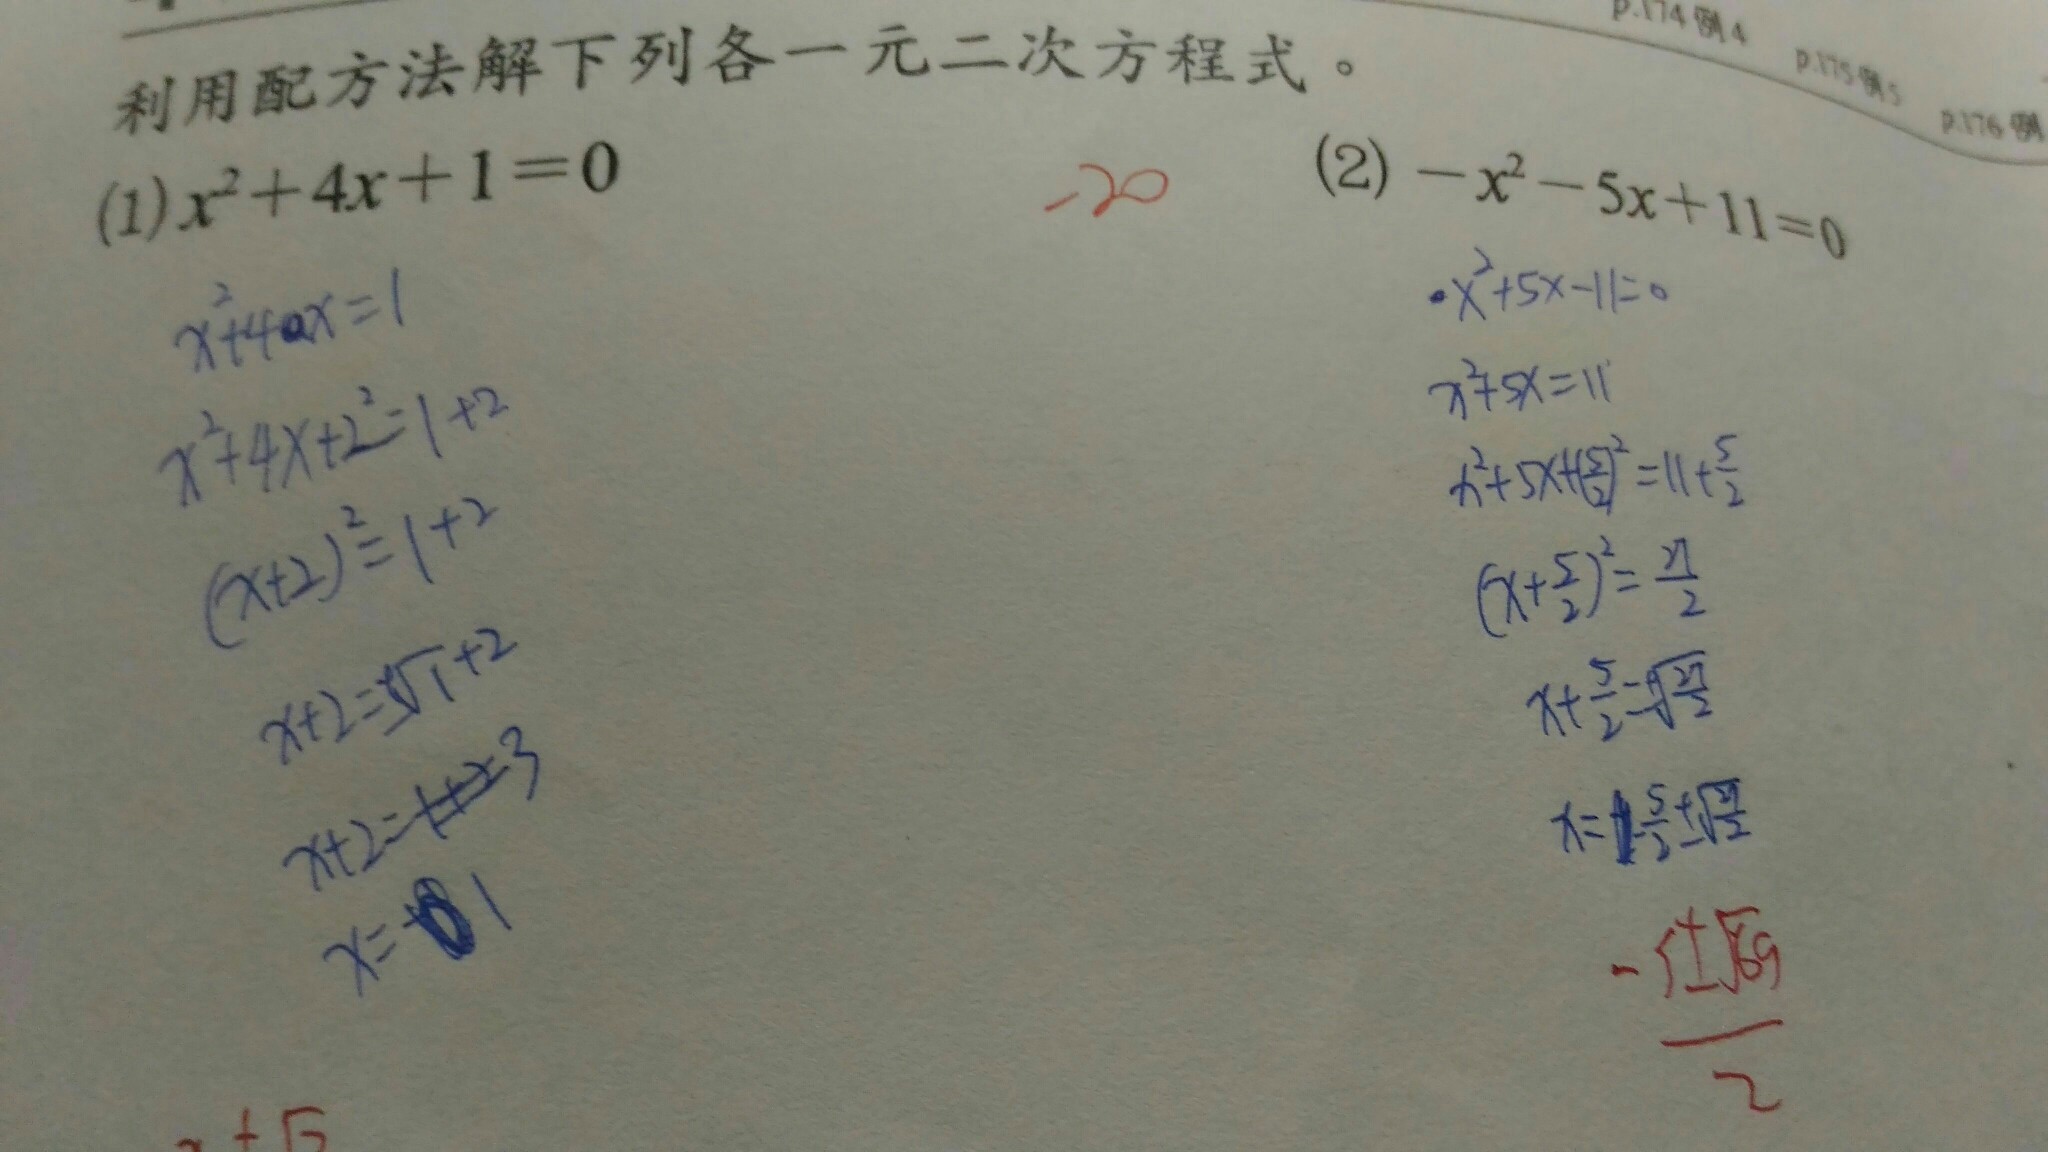 P.174 例4
P.175 例5
P.176 例
利用配方法解下列各一元二次方程式。
(1) x²+4x+1=0
-20
(2) -x²-5x+11=0
x²+4x=1
x²+4x+2²=1+2
(x+2)²=1+2
x+2=±√1+2
x+2=3
x=1
x²+5x-11=0
x²+5x=11
x²+5x+(5/2)²=11+5/2
(x+5/2)²=27/2
x+5/2=±√27/2
x=-5/2±√27/2
-5±√69
2